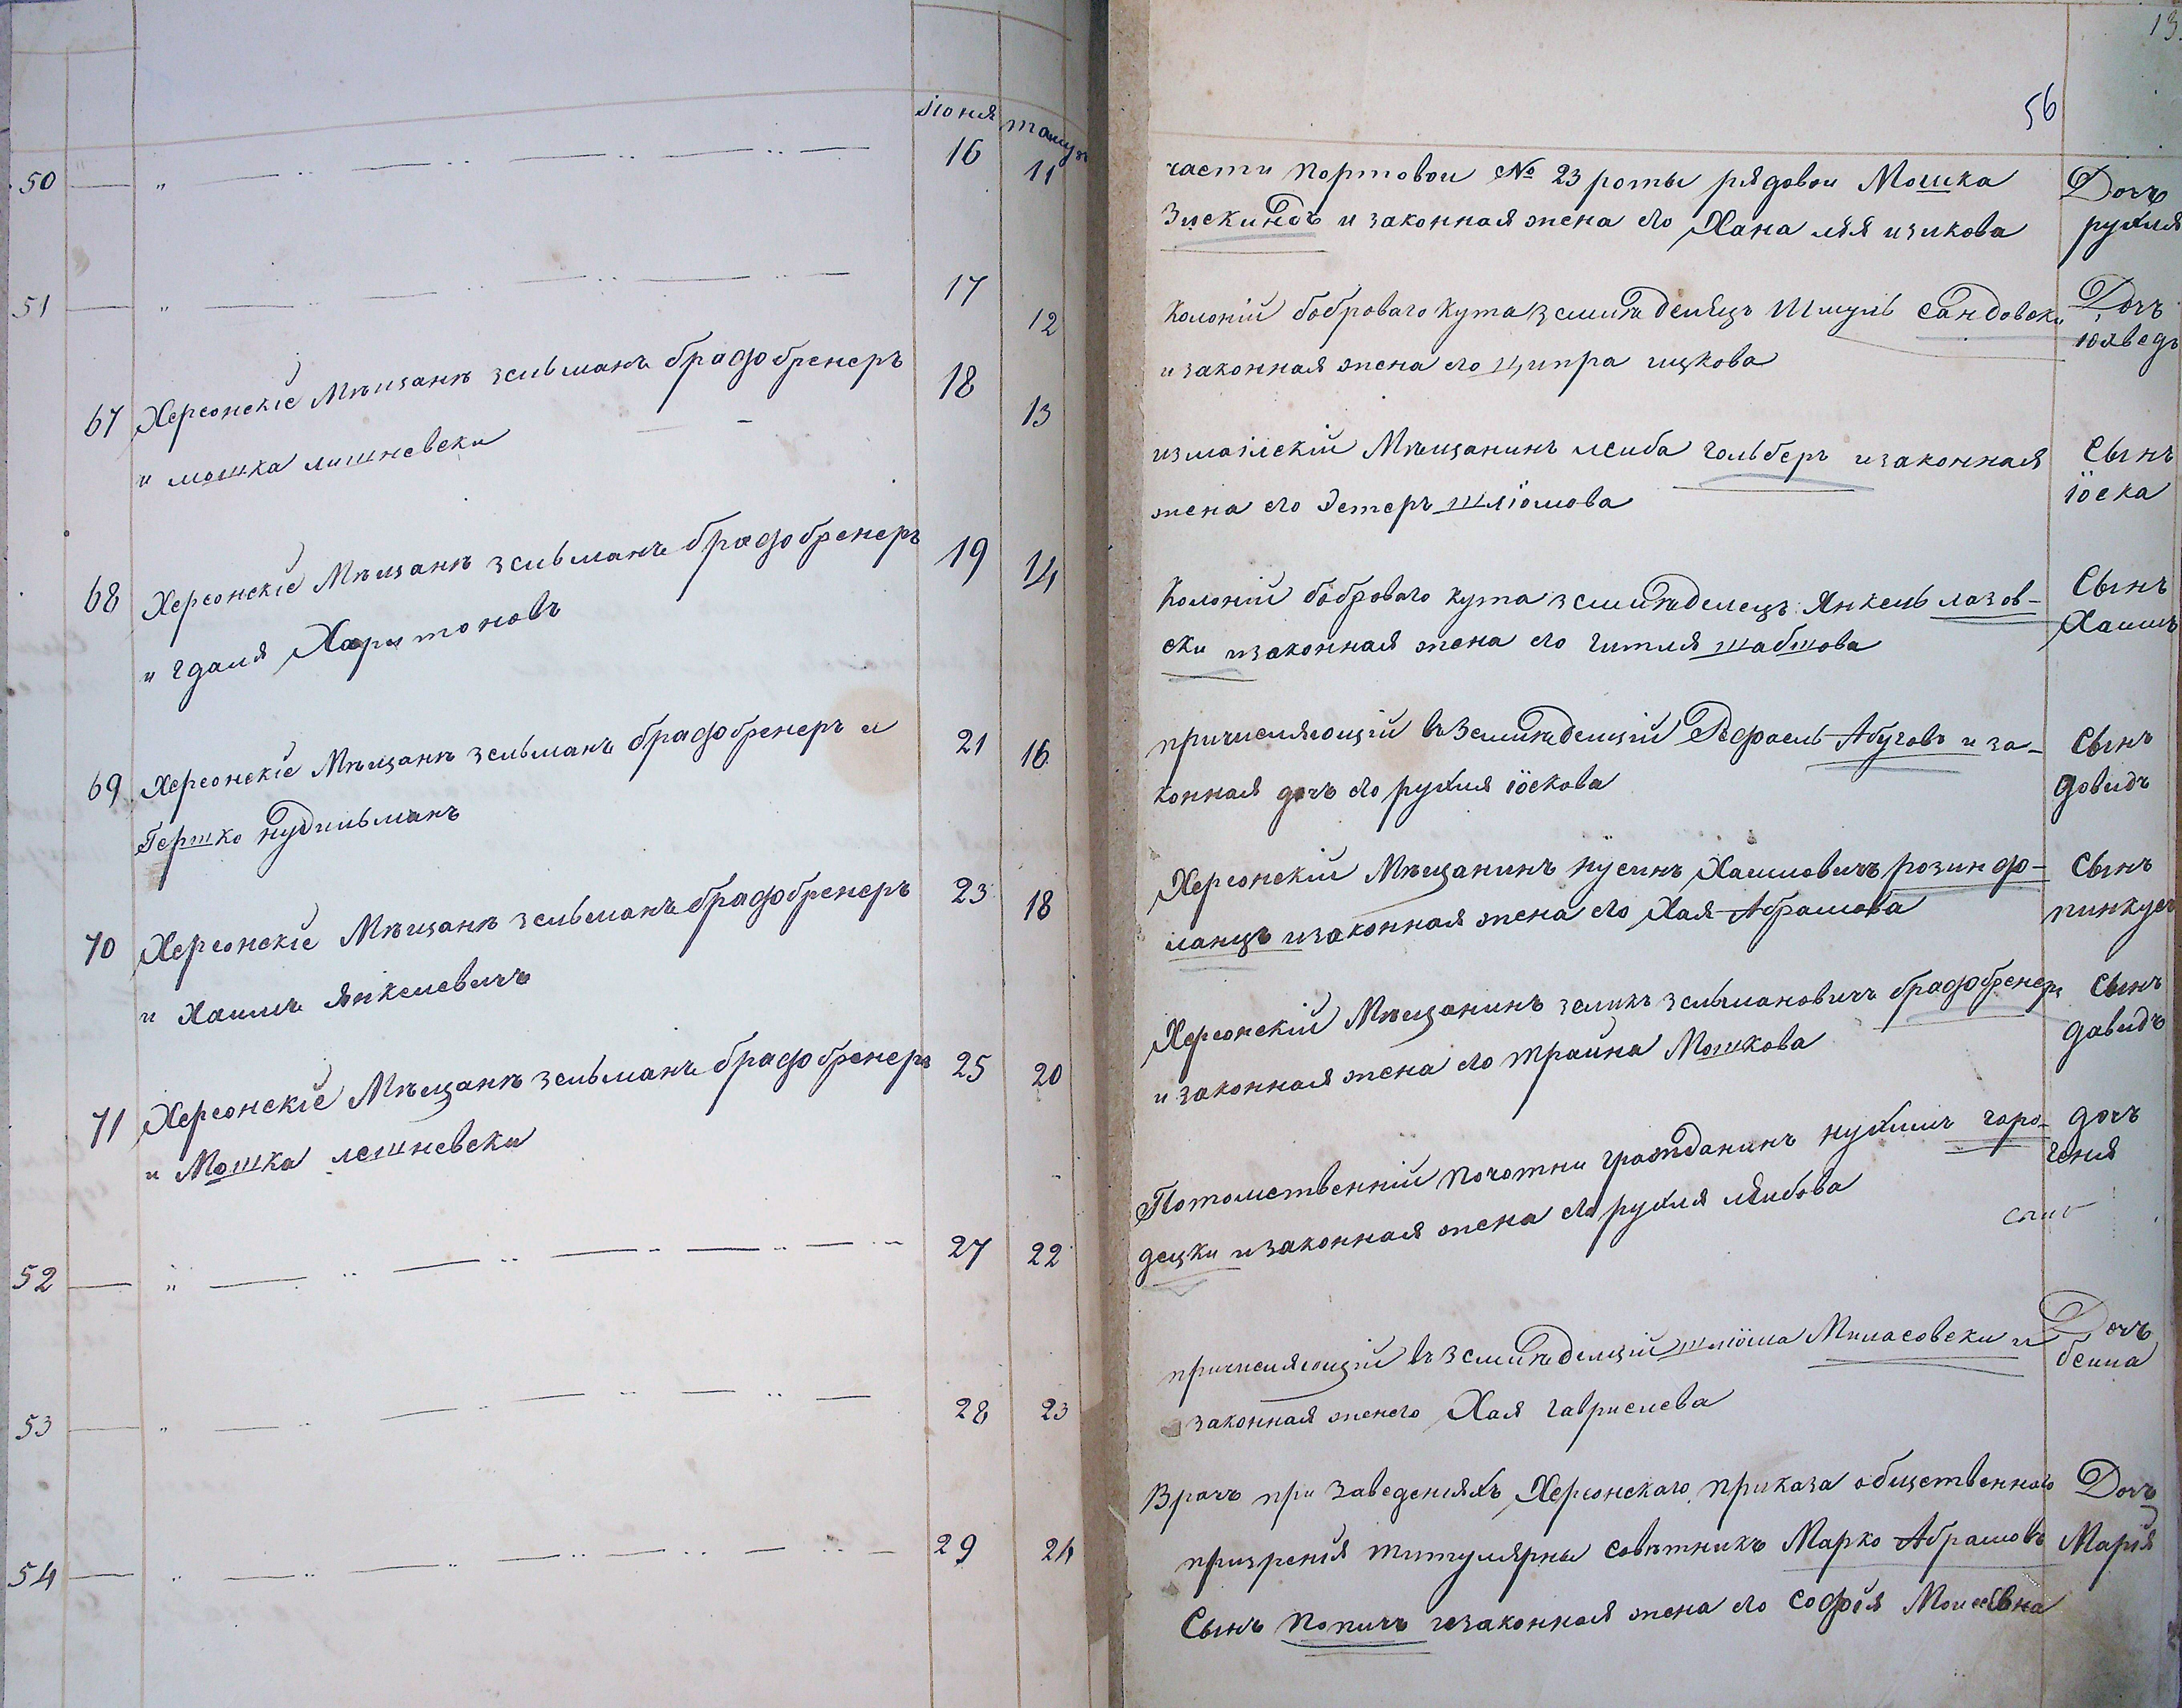 Іюня тамуз
50 16 11
51 17 12
67 Херсонскіе Мѣщанѣ зельманъ брадобренеръ 18 13
и мошка лишневски
68 Херсонскіе Мѣщанѣ зельманъ брадобренеръ 19 14
и гдаля Харитоновъ
69 Херсонскіе Мѣщанѣ зельманъ брадобренеръ и 21 16
Гершко нудильманъ
70 Херсонскіе Мѣщанѣ зельманъ брадобренеръ 23 18
и Хаимъ Янкелевичъ
71 Херсонскіе Мѣщанѣ зельманъ брадобренеръ 25 20
и Мошка лешневски
52 27 22
53 28 23
54 29 24
13
56
части портовои № 23 роты рядовои Мошка Дочъ
Зискиндъ и законная жена его Хана ляя ицикова рухля
Колоніи боброваго кута земледелецъ Шмуль сандовски Дочъ
и законная жена его ципра ицкова іохведъ
измаилскіи Мѣщанинъ лейба гольберъ и законная Сынъ
жена его Эстеръ шліомова іоска
Колоніи боброваго кута земледелецъ Янкель лазов- Сынъ
ски и законная жена его гитля шабшова Хаимъ
причисляющіи въ земледелціи Рефаель Абуговъ и за- Сынъ
конная дочъ его рухля іоскова довидъ
Херсонскіи Мѣщанинъ нусинъ Хаимовичъ розин до- Сынъ
ланцъ и законная жена его Хая Абрамова пинкус
Херсонскіи Мѣщанинъ зеликъ зельмановичъ брадобренеръ Сынъ
и законная жена его траина Мошкова давидъ
Потомственніи почотни гражданинъ нухимъ горо- дочъ
децки и законная жена его рухля лейбова геня
причисляющіи въ земледелціи шліома Миласовски и Дочъ
законная женего Хая гавриелева бейла
Врачъ при заведеніяхъ Херсонскаго приказа общественного Дочъ
призренія титулярны совѣтникъ Марко Абрамовъ Марія
Сынъ попичъ и законная жена его софія Моисеевна